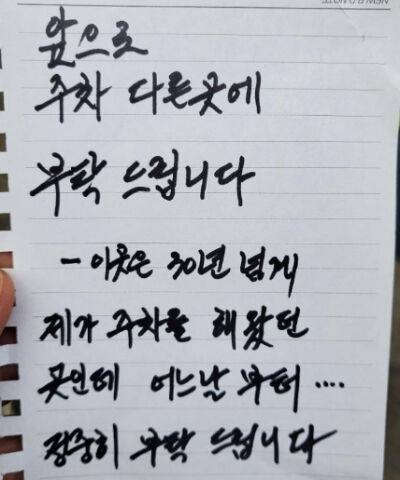 앞으로
주차 다른곳에
부탁 드립니다
- 이곳은 30년 넘게
제가 주차를 해왔던
곳인데 어느날 부터 ....
정중히 부탁 드립니다